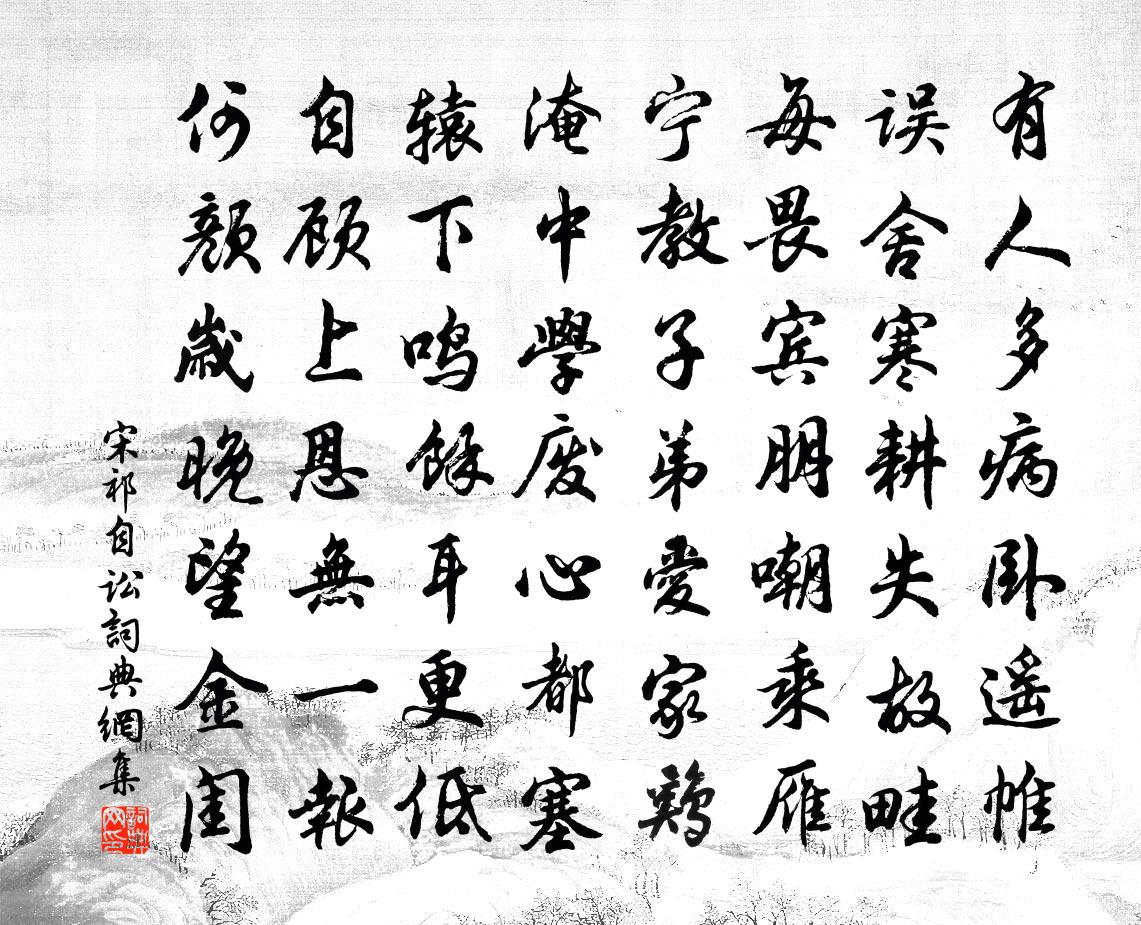 有人多病卧遥帷
误舍寒耕失故畦
每畏宾朋嘲乘雁
宁教子弟爱家鸡
淹中學废心都塞
辕下鸣馀耳更低
自顾上恩無一報
何颜歲晚望金闺
宋祁自讼詞典網集